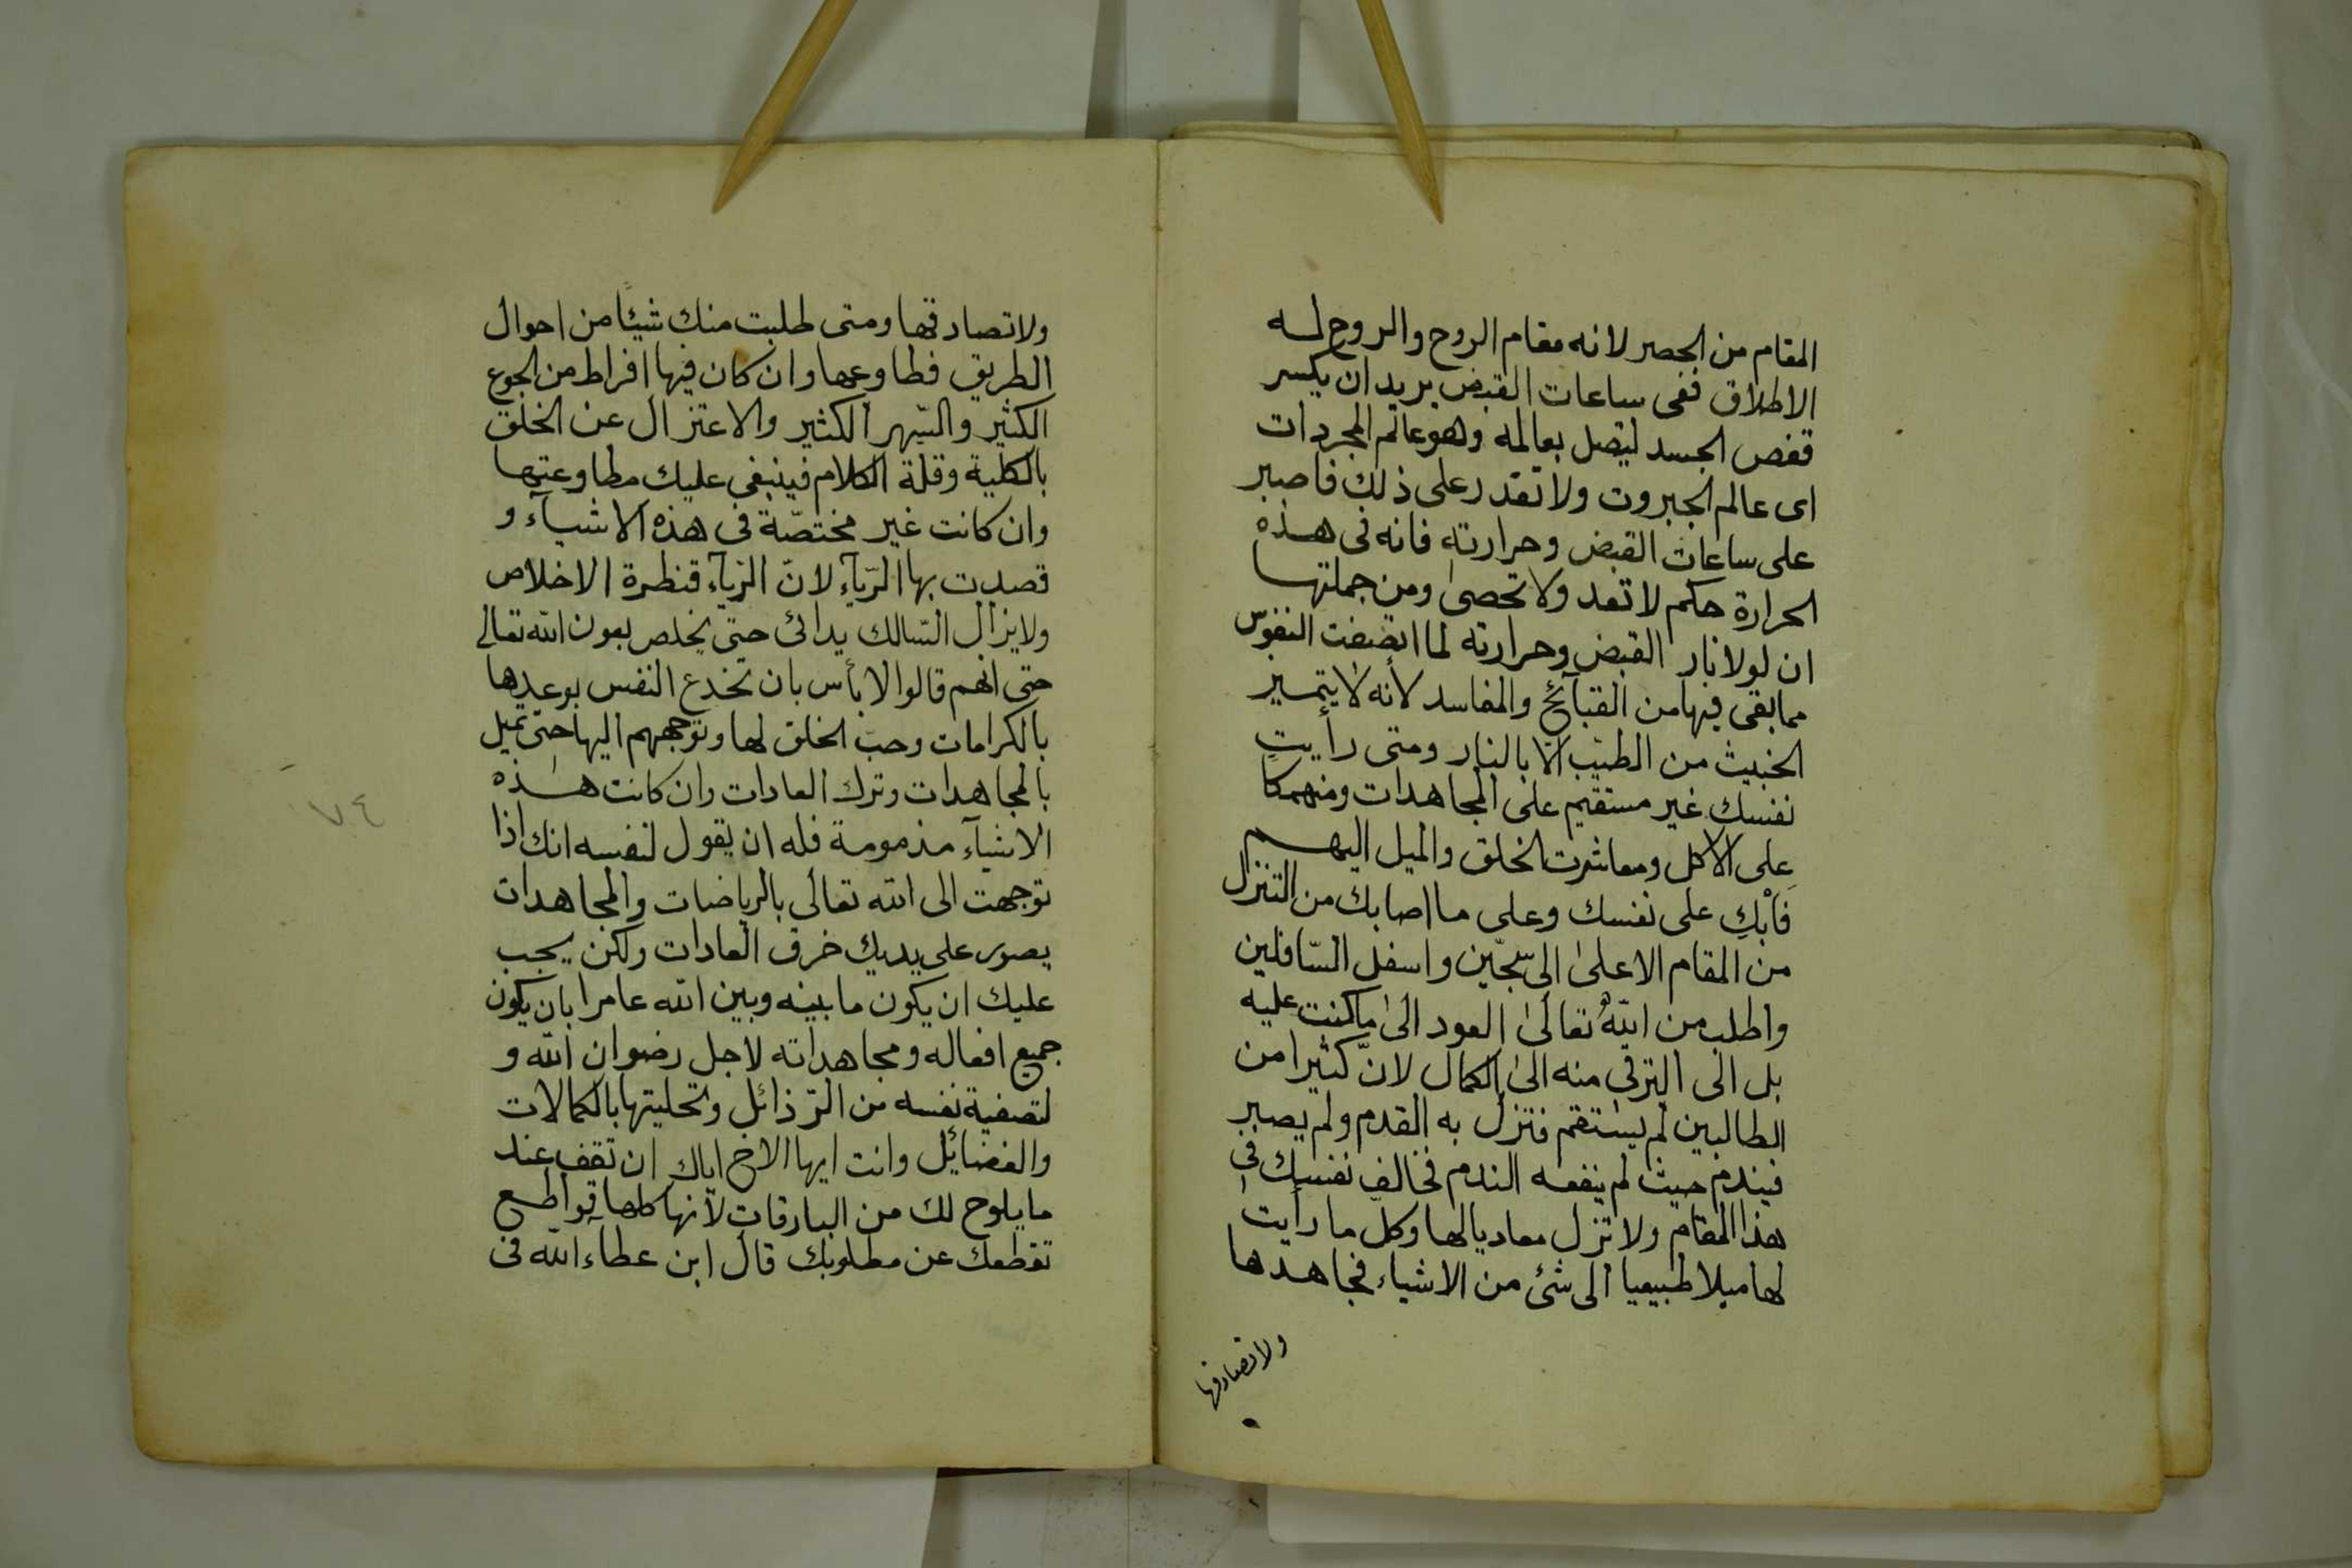 المقام من الحصر لانه مقام الروح والروح له
الاطلاق ففى ساعات القبض يريد ان يكسر
قفص الجسد ليتصل بعالمه وهو عالم المجردات
اى عالم الجبروت ولا تقدر على ذلك فاصبر
على ساعات القبض وحرارته فانه فى هذه
الحرارة حكم لا تعد ولا تحصى ومن جملتها
ان لولا نار القبض وحرارته لما اتضفت النفوس
مما بقى فيها من القبآئح والمفاسد لأنه لا يتميز
الخبيث من الطيّب الّا بالنار ومتى رأيت
نفسك غير مستقيم على المجاهدات ومنهمكا
على الاكل ومعاشرت الخلق والميل اليهم
فَاَبْكِ على نفسك وعلى ما اصابك من التنزل
من المقام الاعلىٰ الى سجّين واسفل السّافلين
واطلب من اللهُ تعالىٰ العود الىٰ ما كنت عليه
بل الى الترقى منه الى الكمال لانّ كثيرا من
الطالبين لم يستقم فتزل به القدم ولم يصبر
فيندم حيث لم ينفعه الندم فخالف نفسك فى
هذا المقام ولا تزل معاديا لها وكل ما رأيت
لها ميلا طبيعيا الى شئ من الاشياء فجاهدها
ولا تصادقها
ولا تصادقها ومتى طلبت منك شيئًا من احوال
الطريق فطاوعها وان كان فيها افراط من الجوع
الكثير والسّهر الكثير والاعتزال عن الخلق
بالكلية وقلة الكلام فينبغى عليك مطاوعتها
وان كانت غير مختصّة فى هذه الاشيآء و
قصدت بها الرّيآء لانّ الرّيآء قنطرة الاخلاص
ولا يزال السّالك يدائى حتى يخلص بعون الله تعالى
حتى انهم قالوا لا بأس بان تخدع النفس بوعدها
بالكرامات وحبّ الخلق لها وتوجههم اليها حتى تميل
بالمجاهدات وترك العادات وان كانت هذه
الاشيآء مذمومة فله ان يقول لنفسه انك اذا
توجهت الى الله تعالى بالرياضات والمجاهدات
يصور على يديك خرق العادات ولكن يجب
عليك ان يكون ما بينه وبين الله عامرا بان يكون
جميع افعاله ومجاهداته لاجل رضوان الله و
لتصفية نفسه من الرّذائل وتحليتها بالكمالات
والفضائل وانت ايها الاخ اياك ان تقف عند
ما يلوح لك من البارقات لأنها كلها قواطع
تقطعك عن مطلوبك قال ابن عطآء الله فى
٧٤